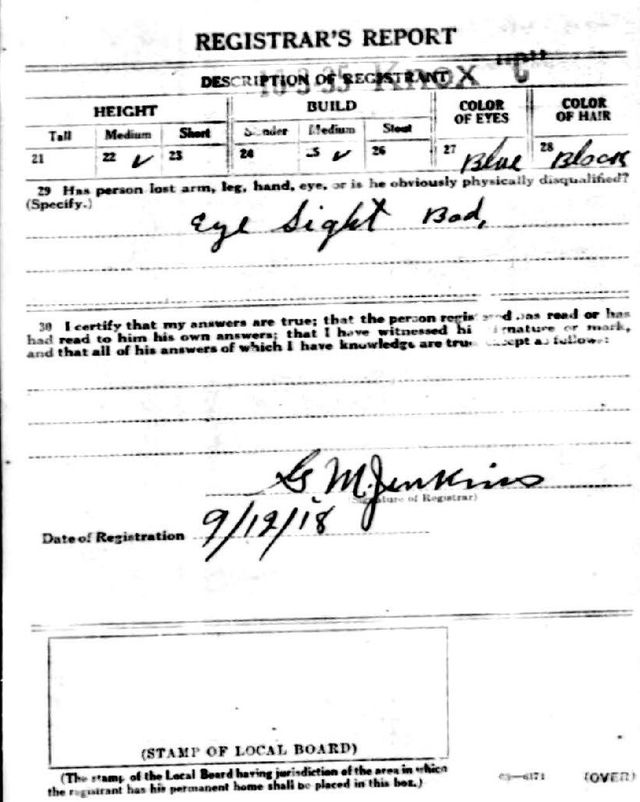 REGISTRAR'S REPORT
10-3-35 Knox "C"
DESCRIPTION OF REGISTRANT
HEIGHT BUILD COLOR OF EYES COLOR OF HAIR
Tall Medium Short Slender Medium Stout
21 22 ✓ 23 24 25 ✓ 26 27 Blue 28 Black
29 Has person lost arm, leg, hand, eye, or is he obviously physically disqualified?
(Specify.)
Eye Sight Bad,
30 I certify that my answers are true; that the person registered has read or has
had read to him his own answers; that I have witnessed his signature or mark,
and that all of his answers of which I have knowledge are true, except as follows:
G M. Jenkins
(Signature of Registrar)
Date of Registration 9/12/18
(STAMP OF LOCAL BOARD)
(The stamp of the Local Board having jurisdiction of the area in which
the registrant has his permanent home shall be placed in this box.)
03—6171 (OVER)